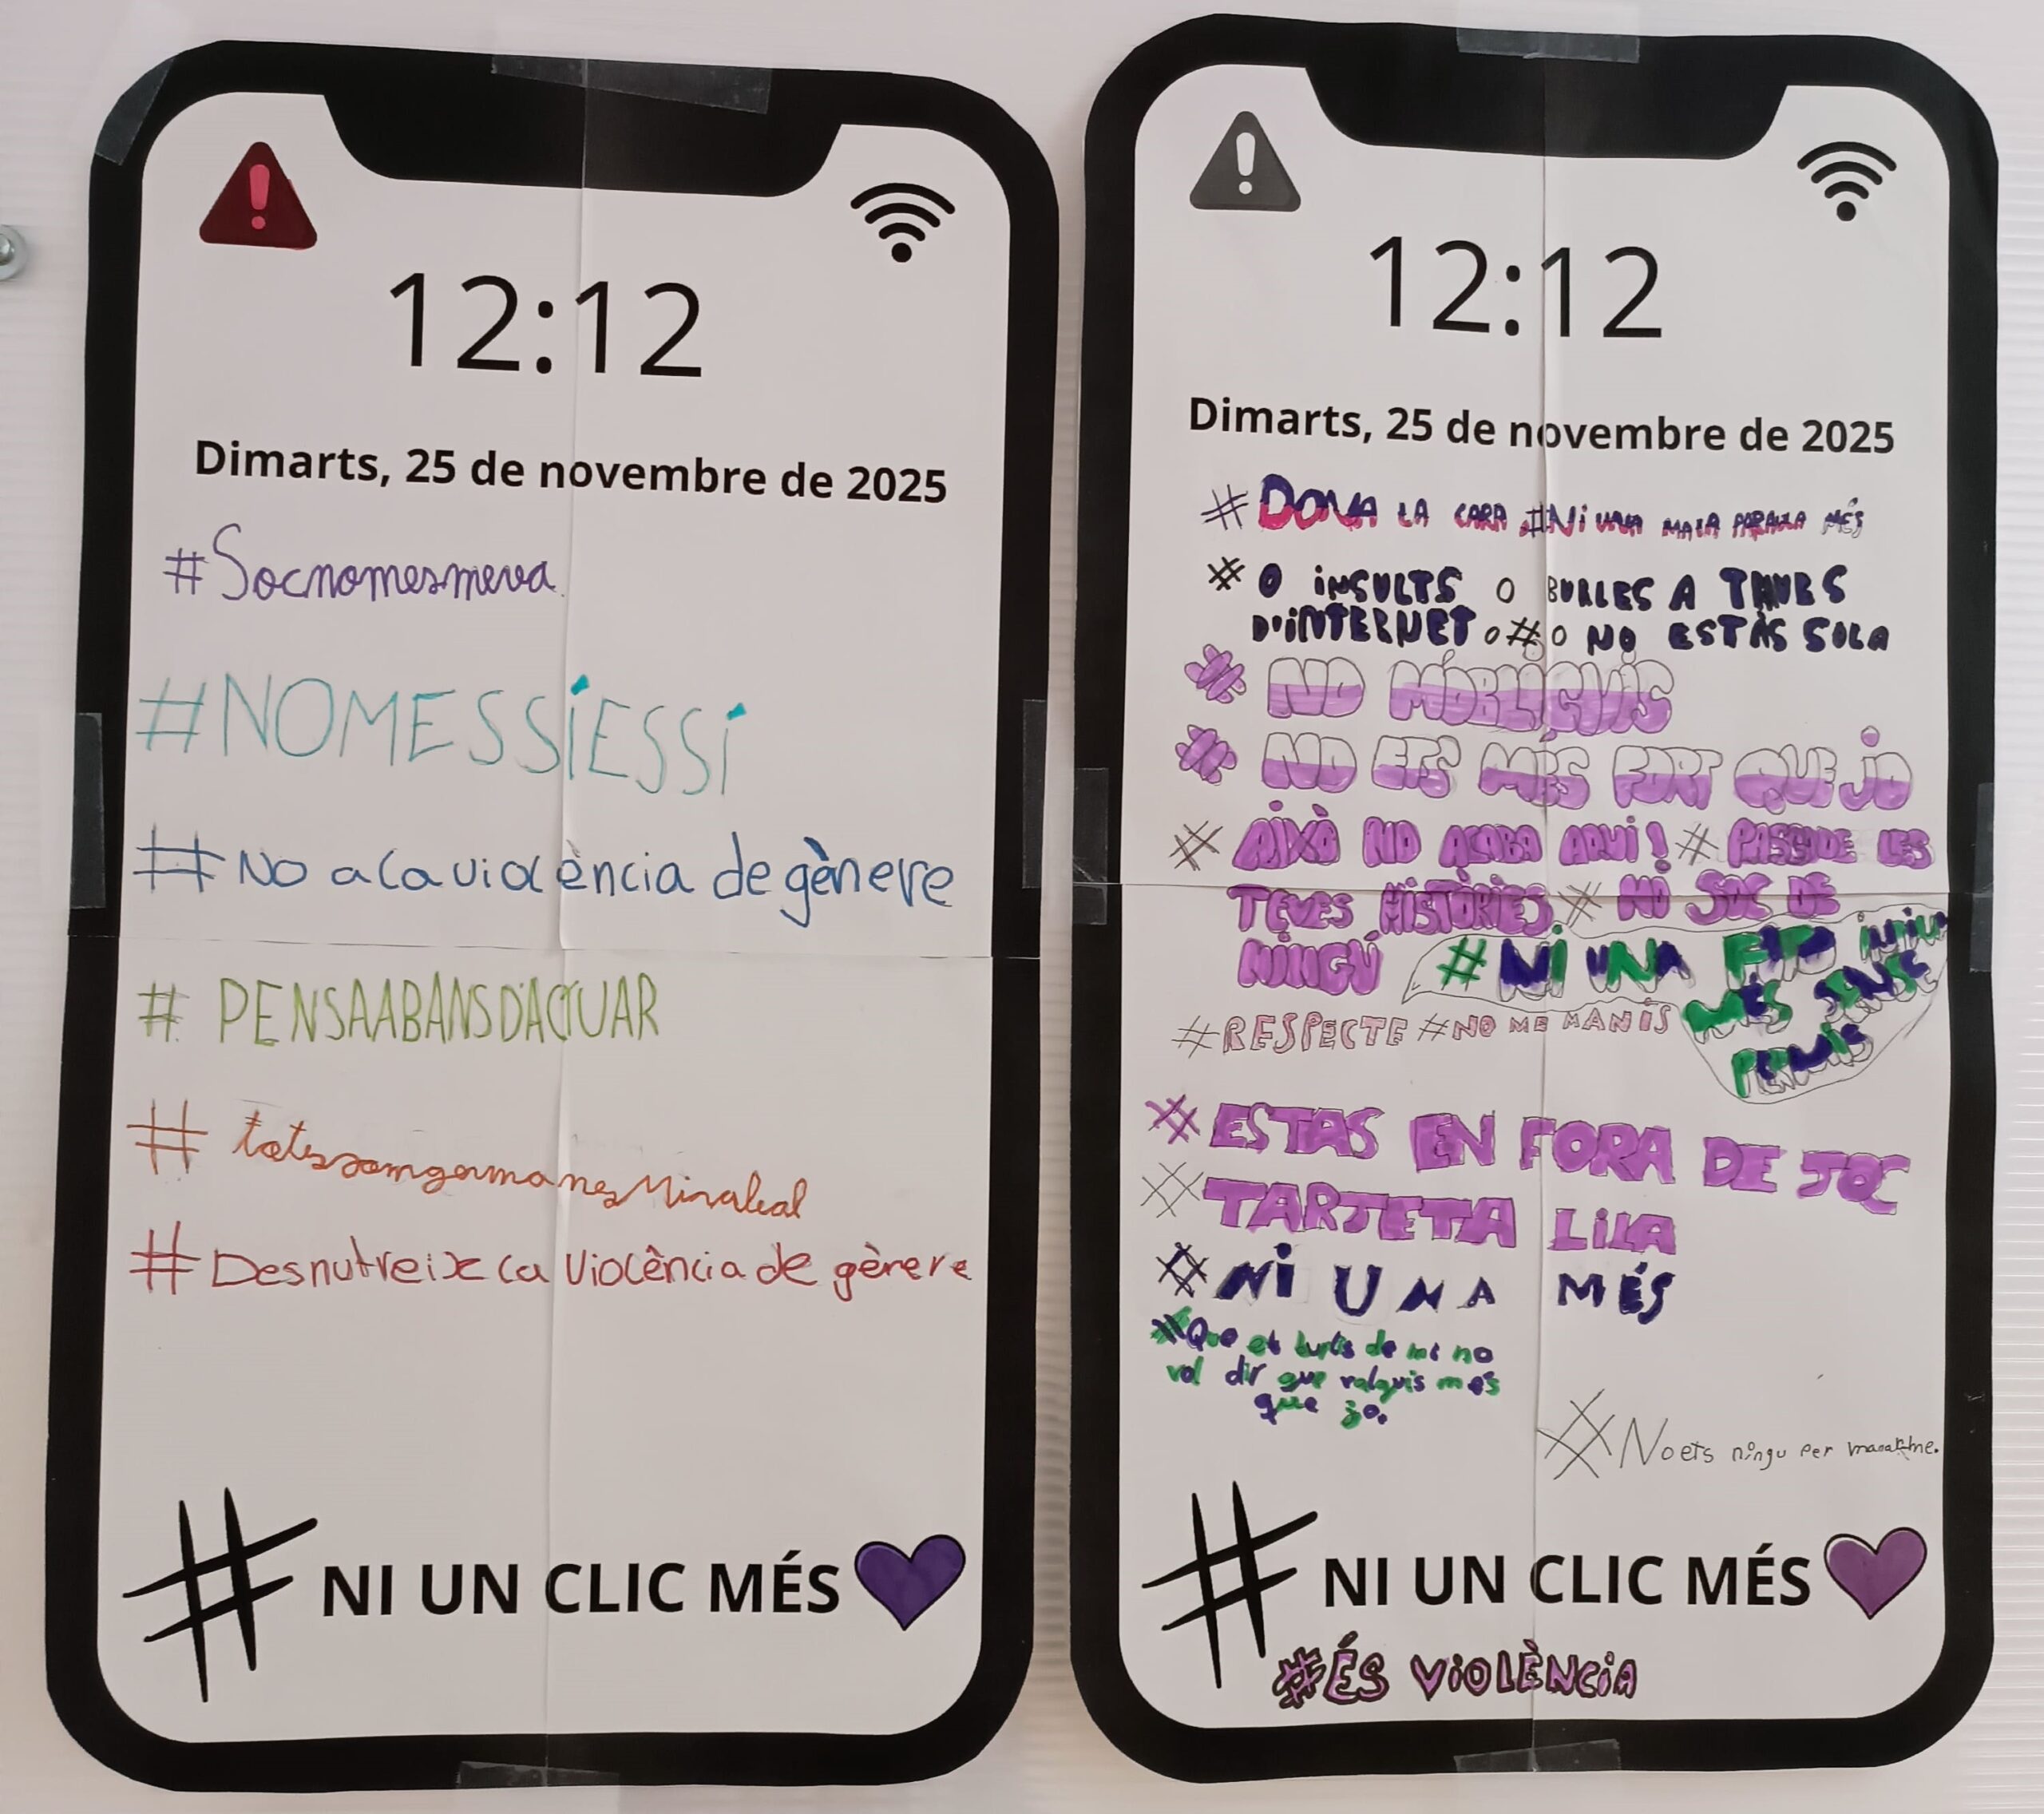 12:12
Dimarts, 25 de novembre de 2025
#Socnomesmeva
#NOMESSÍESSÍ
#No a la violència de gènere
# PENSAABANSD'ACTUAR
# totessomgermanes
#Desnutreix la violència de gènere
# NI UN CLIC MÉS
12:12
Dimarts, 25 de novembre de 2025
#DONA LA CARA #Ni UNA MALA PARAULA MÉS
# 0 iNSULTS 0 BURLES A
D'iNTERNET. # NO ESTÀS SOLA
# NO M'OBLIGUIS
# NO ETS MÉS FORT QUE JO
# AIXÒ NO ACABA AQUÍ! # DE LES
TEVES HISTÒRIES # NO SOC DE
NINGÚ
#NI UNA FOTO
MÉS SENSE
PERMÍS
#RESPECTE #NO ME MANIS
#ESTAS EN FORA DE JOC
#TARJETA LiLA
#Ni UNA MÉS
#Que et burlis de mi no
vol dir que valguis més
que jo.
#No ets ningu per
# NI UN CLIC MÉS
#ÉS ViOLÈNCiA